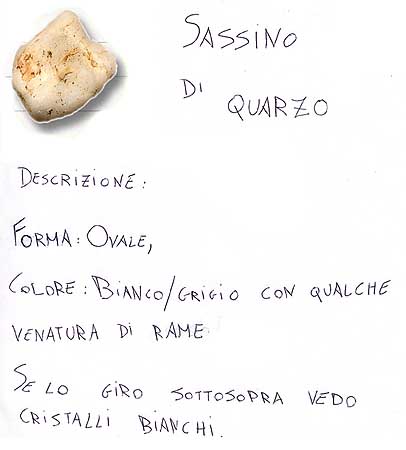 SASSINO
DI
QUARZO
DESCRIZIONE:
FORMA: OVALE,
COLORE: BIANCO/GRIGIO CON QUALCHE
VENATURA DI RAME
SE LO GIRO SOTTOSOPRA VEDO
CRISTALLI BIANCHI.